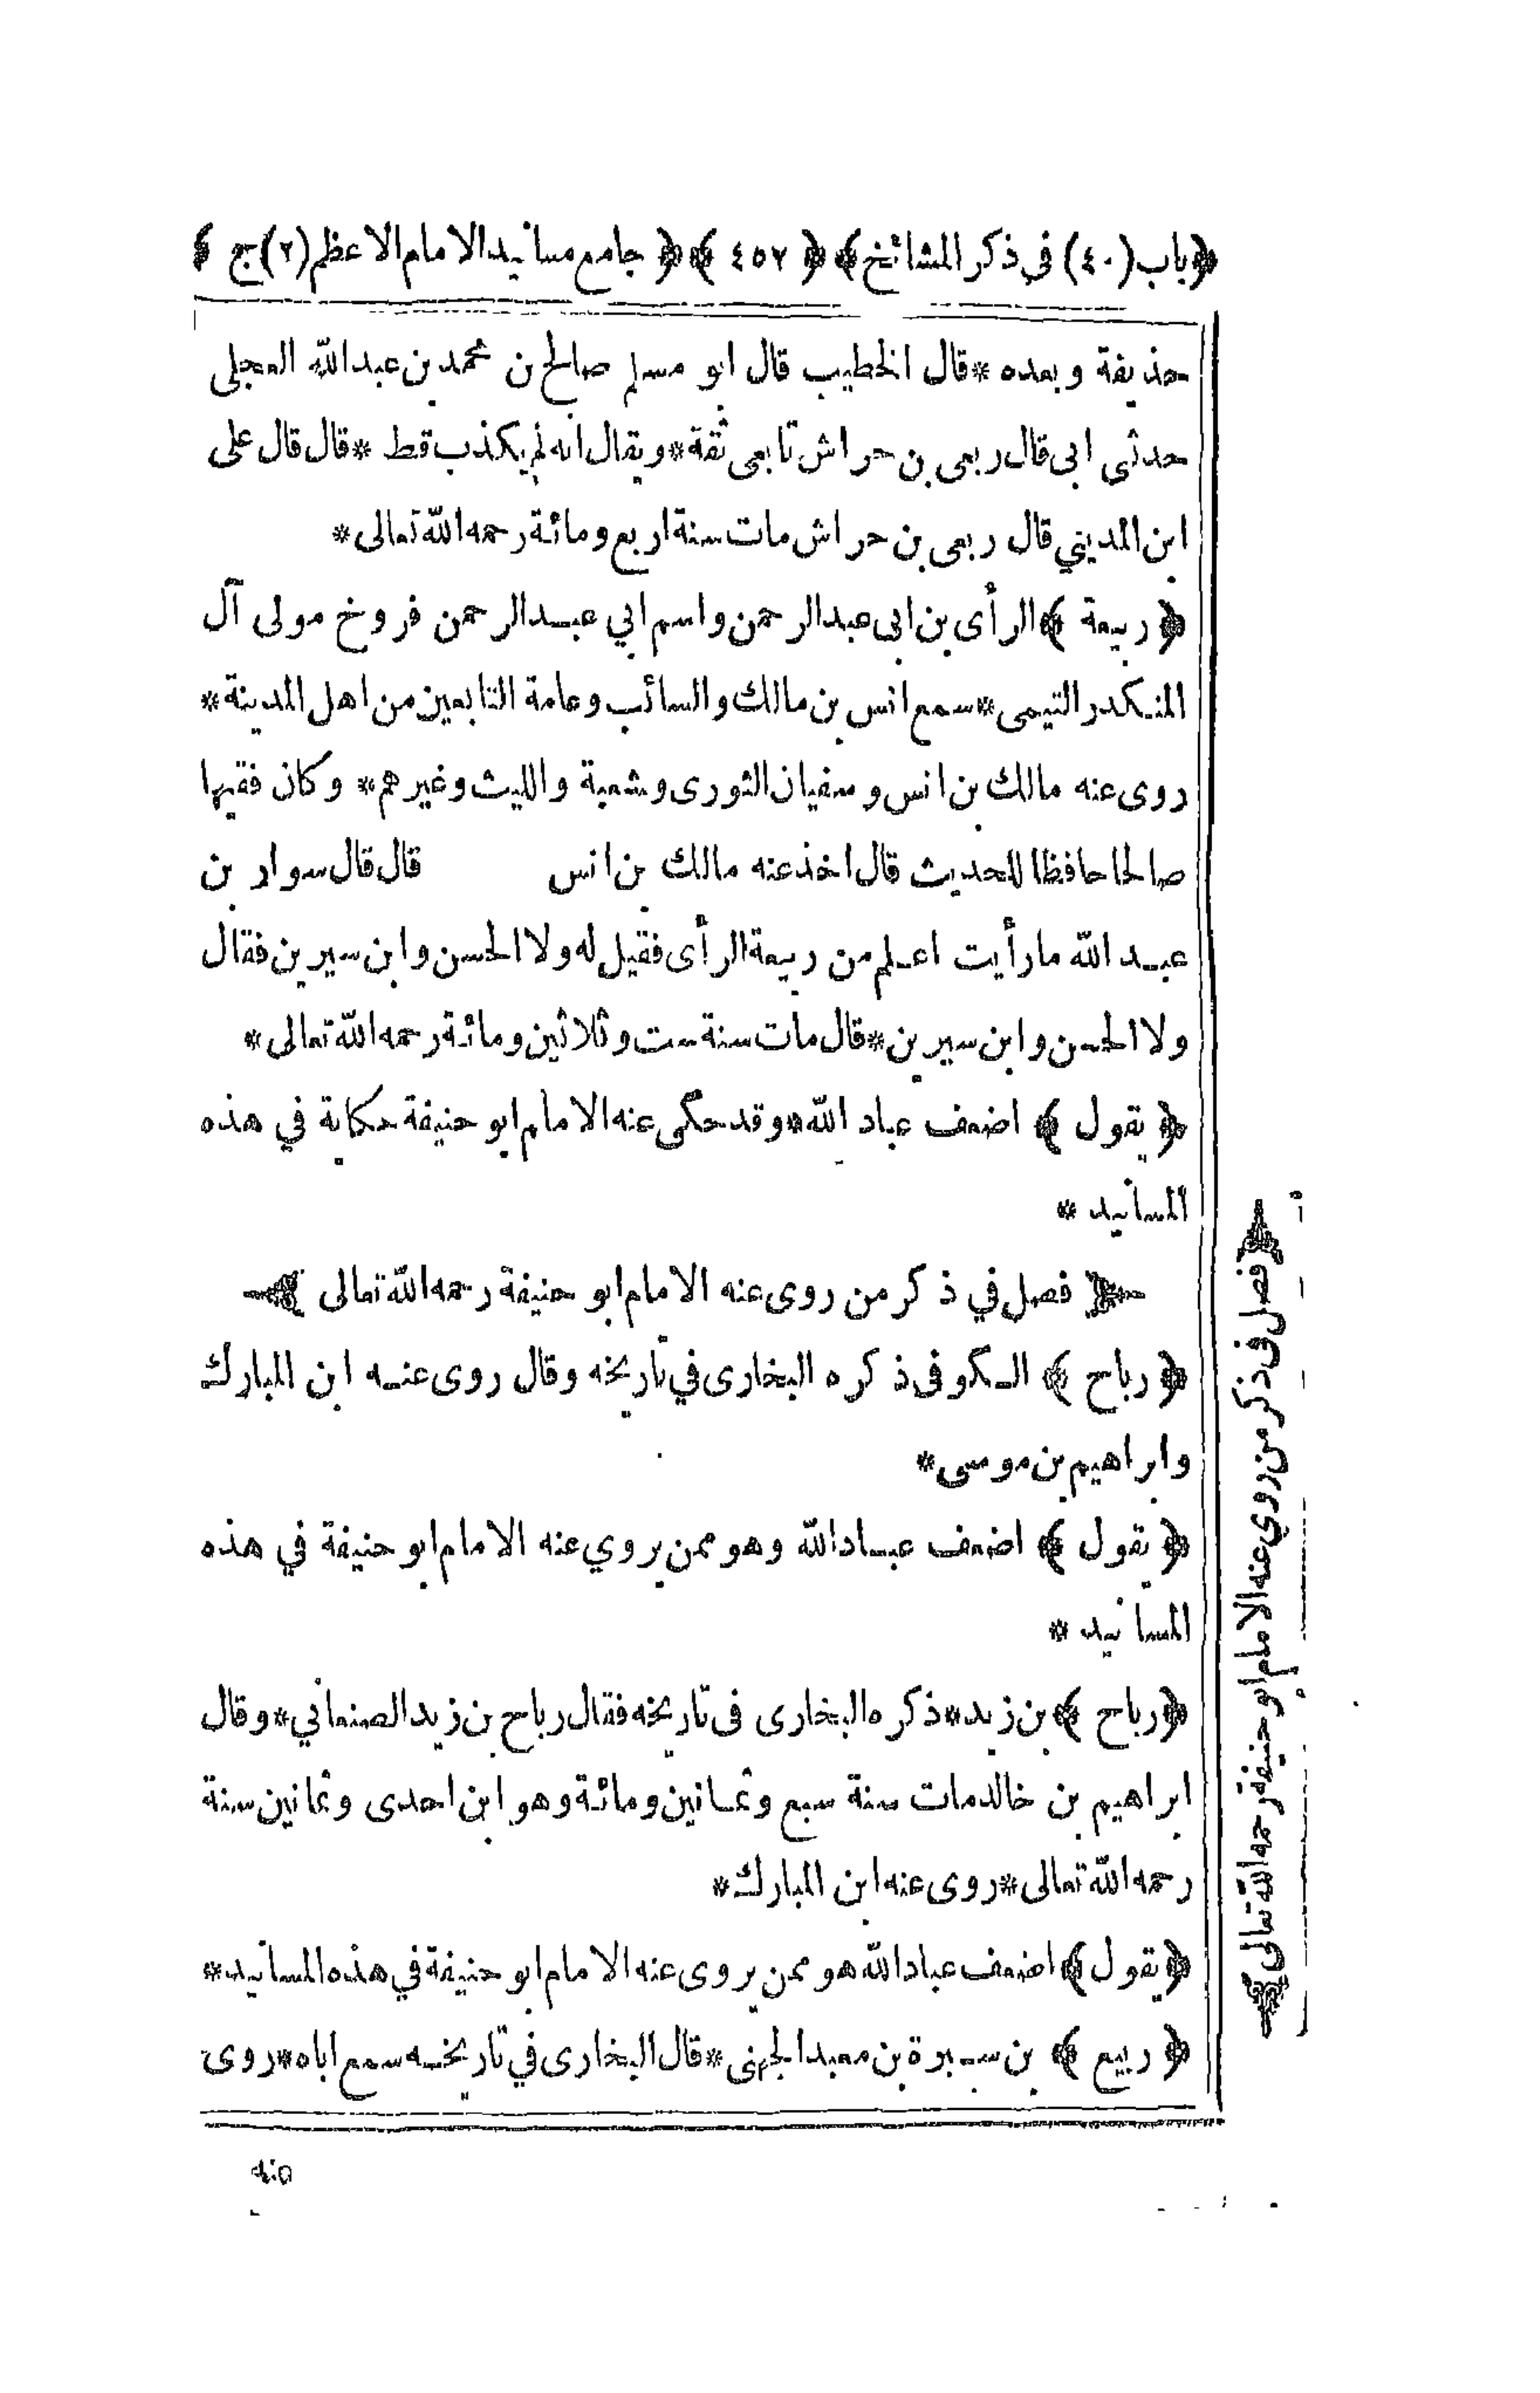 ﴿باب (٤٠) فى ذكر المشائخ﴾ ﴿ ٤٥٧ ﴾ ﴿ جامع مسانيد الامام الاعظم (٢) ج ﴾
حذيفة وبعده * قال الخطيب قال ابو مسلم صالح بن محمد بن عبد الله العجلى
حدثى ابى قال ربعى بن حراش تابعى ثقة * ويقال انه لم يكذب قط * قال قال على
ابن المديني قال ربعى بن حراش مات سنة اربع ومائة رحمه الله تعالى *
﴿ ربيعة ﴾ الرأى بن ابى عبد الرحمن واسم ابي عبد الرحمن فروخ مولى آل
المنكدر التيمى * سمع انس بن مالك والسائب وعامة التابعين من اهل المدينة *
روى عنه مالك بن انس وسفيان الثورى وشعبة والليث وغيرهم * وكان فقيها
صالحا حافظا للحديث قال اخذ عنه مالك بن انس قال قال سوار بن
عبد الله ما رأيت اعلم من ربيعة الرأى فقيل له ولا الحسن وابن سيرين فقال
ولا الحسن وابن سيرين * قال مات سنة ست وثلاثين ومائة رحمه الله تعالى *
﴿ يقول ﴾ اضعف عباد الله * وقد حكى عنه الامام ابو حنيفة حكاية في هذه
المسانيد *
فصل في ذكر من روى عنه الامام ابو حنيفة رحمه الله تعالى
﴿ رباح ﴾ الكوفى ذكره البخارى في تاريخه وقال روى عنه ابن المبارك
وابراهيم بن موسى *
﴿ يقول ﴾ اضعف عباد الله وهو ممن يروي عنه الامام ابو حنيفة في هذه
المسانيد *
﴿ رباح ﴾ بن زيد * ذكره البخارى فى تاريخه فقال رباح بن زيد الصنعاني * وقال
ابراهيم بن خالد مات سنة سبع وثمانين ومائة وهو ابن احدى وثمانين سنة
رحمه الله تعالى * روى عنه ابن المبارك *
﴿ يقول ﴾ اضعف عباد الله هو ممن يروى عنه الامام ابو حنيفة في هذه المسانيد *
﴿ ربيع ﴾ بن سبرة بن معبد الجهنى * قال البخارى في تاريخه سمع اباه * روى
عنه
فصل فى ذكر من روي عنه الامام ابو حنيفة رحمه الله تعالى